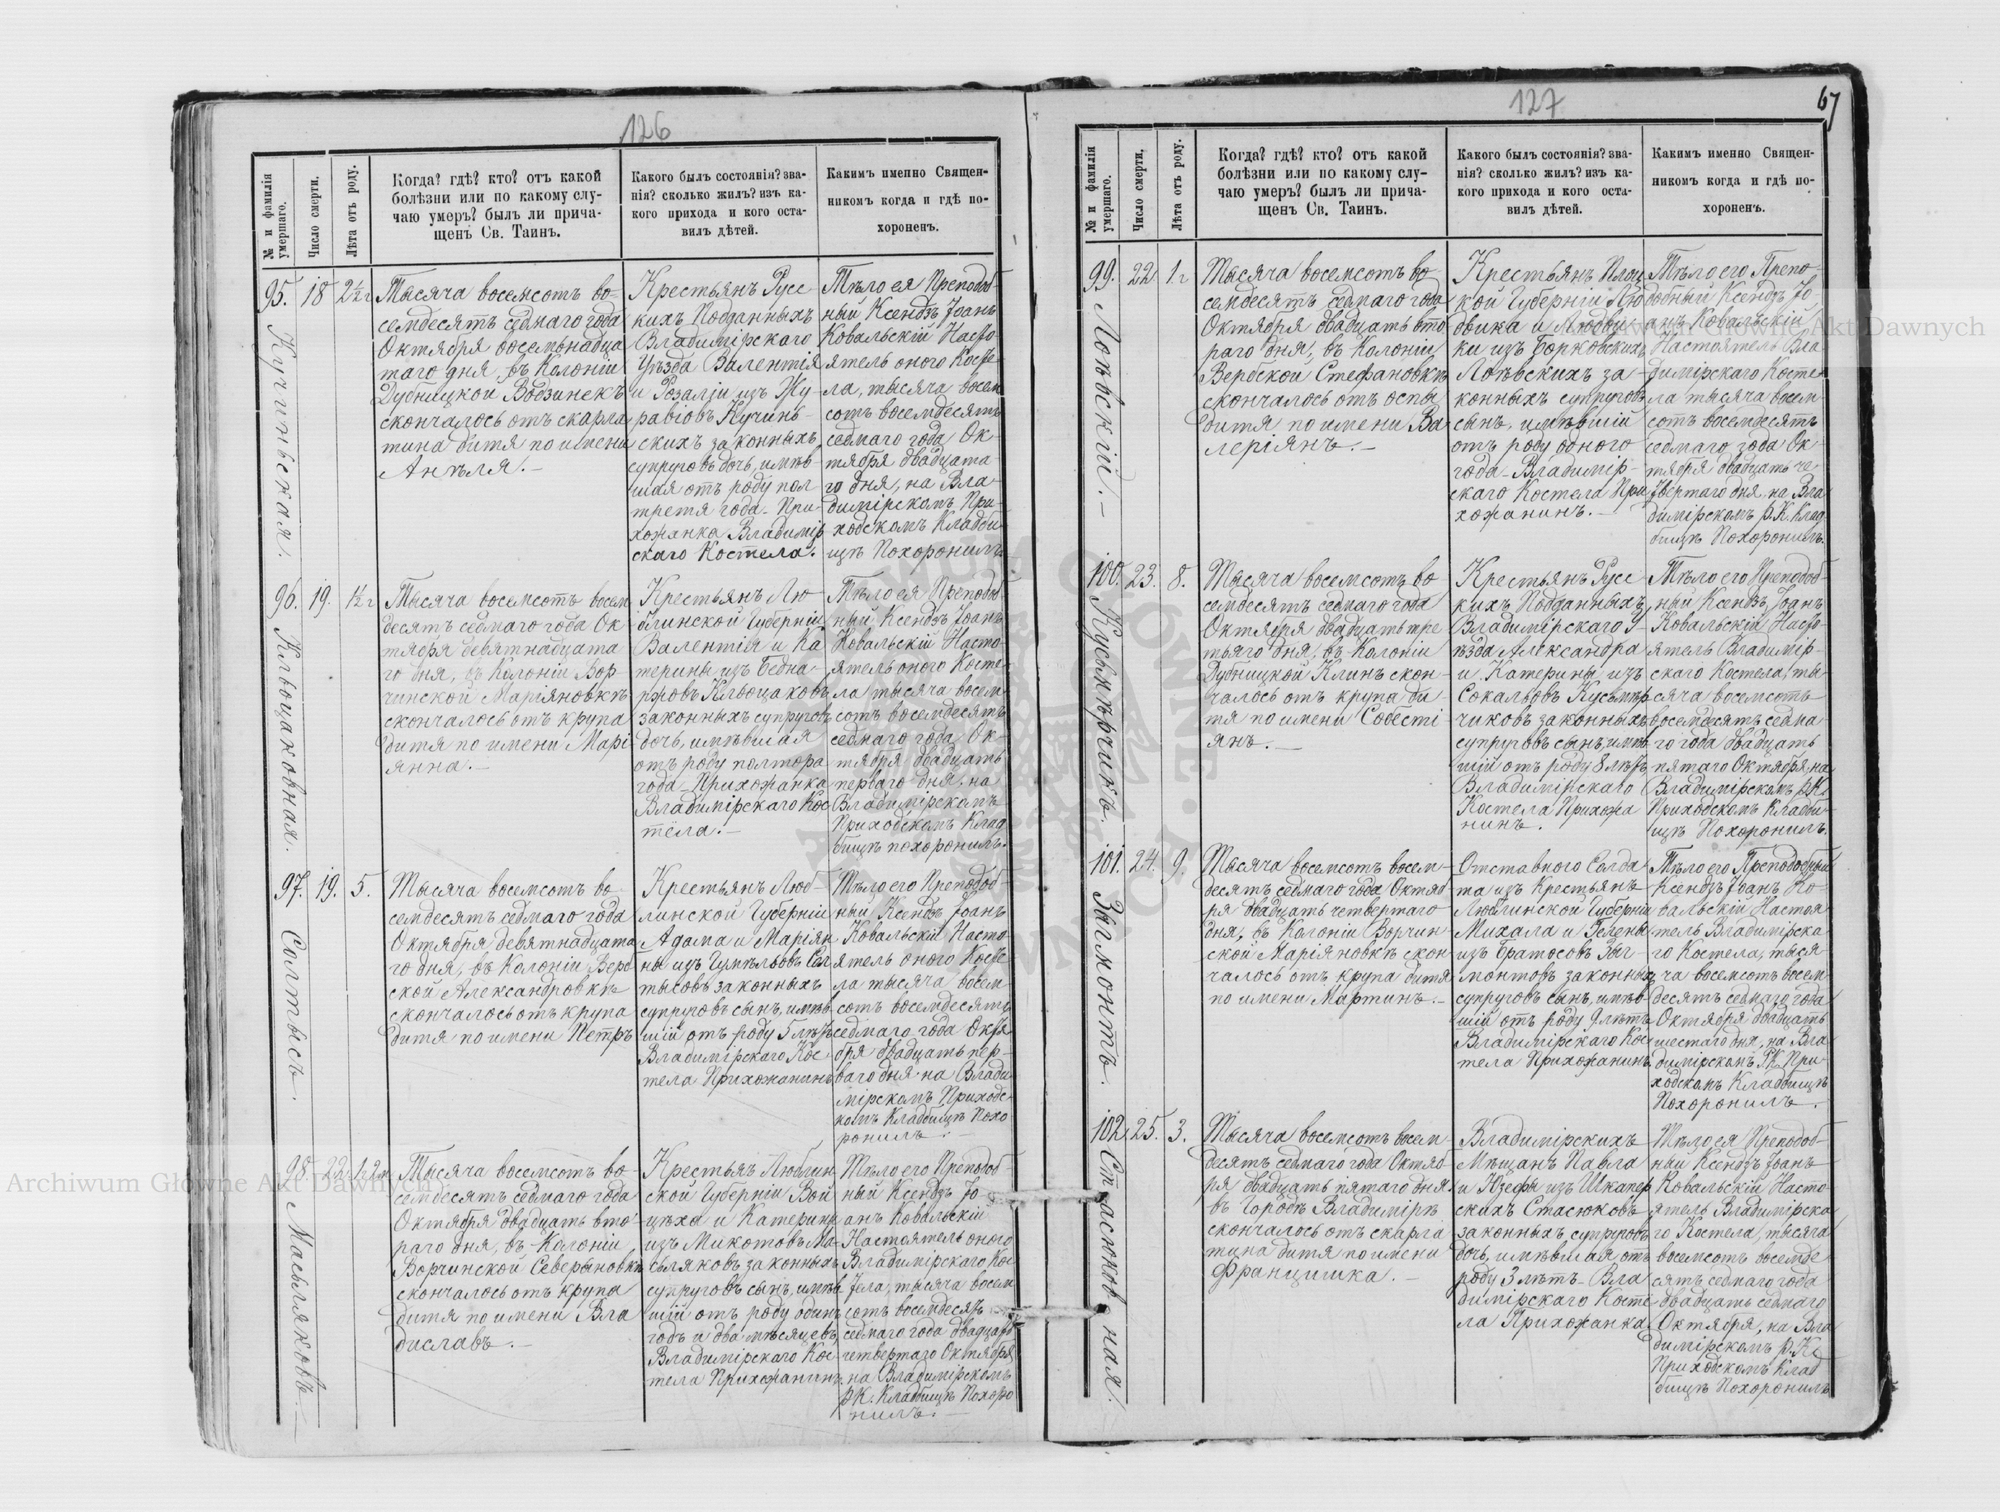 126
№ и фамилія умершаго.
Число смерти.
Лѣта отъ роду.
Когда? гдѣ? кто? отъ какой
болѣзни или по какому слу-
чаю умеръ? былъ ли прича-
щенъ Св. Таинъ.
Какого былъ состоянія? зва-
нія? сколько жилъ? изъ ка-
кого прихода и кого оста-
вилъ дѣтей.
Какимъ именно Священ-
никомъ когда и гдѣ по-
хороненъ.
95.
Кучинская.
18
2½ г
Тысяча восемсотъ во-
семдесятъ седмаго года
Октября восемьнадца
таго дня, въ Колоніи
Дубницкой Водзинекъ
скончалось отъ скарла
тина дитя по имени
Анѣля.-
Крестьянъ Русс
кихъ Подданныхъ
Владимірскаго
Уѣзда Валентія
и Розаліи изъ Жу
равіовъ Кучинь-
скихъ законныхъ
супруговъ дочь, имѣв
шая отъ роду пол
третя года. При
хожанка Владимір
скаго Костела.
Тѣло ея Преподоб
ный Ксендзъ Іоанъ
Ковальскій Насто
ятель оного Косте
ла, тысяча восем
сотъ восемдесятъ
седмаго года Ок-
тября двадцата-
го дня, на Вла-
димірскомъ При-
ходскомъ Кладби-
щѣ Похоронилъ.
96.
Клвоцаковная.
19.
1½ г
Тысяча восемсотъ восем
десятъ седмаго года Ок
тября девятнадцата
го дня, въ Колоніи Вор
чинской Маріяновкѣ
скончалось отъ крупа
дитя по имени Марі
янна.-
Крестьянъ Лю
блинской Губерніи
Валентія и Ка
терины изъ Бедна-
ржовъ Клвоцаковъ
законныхъ супруговъ
дочь, имѣвшая
отъ роду полтора
года. Прихожанка
Владимірскаго Кос
тела.-
Тѣло ея Преподоб
ный Ксендзъ Іоанъ
Ковальскій Насто
ятель оного Косте
ла тысяча восем-
сотъ восемдесятъ
седмаго года Ок-
тября двадцать
перваго дня, на
Владимірскомъ
Приходскомъ Клад
бищѣ похоронилъ.
97.
Солтысъ.
19.
5.
Тысяча восемсотъ во
семдесятъ седмаго года
Октября девятнадцата
го дня, въ Колоніи Верб
ской Александровкѣ
скончалось отъ крупа
дитя по имени Петръ
Крестьянъ Люб-
линской Губерніи
Адама и Маріян
ны изъ Сол
тысовъ законныхъ
супруговъ сынъ, имѣв
шій отъ роду 5 лѣтъ
Владимірскаго Кос-
тела Прихожанинъ
Тѣло его Преподоб
ный Ксендзъ Іоанъ
Ковальскій Насто-
ятель оного Косте
ла тысяча восем
сотъ восемдесятъ
седмаго года Октя
бря двадцать пер-
ваго дня на Влади
мірскомъ Приходс-
комъ Кладбищѣ Похо
ронилъ.-
98.
Масьляковъ.-
22
1 г 2 м
Тысяча восемсотъ во-
семдесятъ седмаго года
Октября двадцать вто-
раго дня, въ Колоніи
Ворчинской Северыновкѣ
скончалось отъ крупа
дитя по имени Вла
диславъ.-
Крестьянъ Люблин
ской Губерніи Вой
цѣха и Катерины
изъ Микотовъ Ма-
сьляковъ законныхъ
супруговъ сынъ, имѣв
шій отъ роду одинъ
годъ и два мѣсяцевъ,
Владимірскаго Кос-
тела Прихожанинъ
Тѣло его Преподоб
ный Ксендзъ Іо-
анъ Ковальскій
Настоятель оного
Владимірскаго Кос
тела, тысяча восем
сотъ восемдесятъ
седмаго года двадцать
четвертаго Октября
на Владимірскомъ
Р.К. Кладбищѣ Похоро
нилъ.-
127
67
№ и фамилія умершаго.
Число смерти.
Лѣта отъ роду.
Когда? гдѣ? кто? отъ какой
болѣзни или по какому слу-
чаю умеръ? былъ ли прича-
щенъ Св. Таинъ.
Какого былъ состоянія? зва-
нія? сколько жилъ? изъ ка-
кого прихода и кого оста-
вилъ дѣтей.
Какимъ именно Священ-
никомъ когда и гдѣ по-
хороненъ.
99.
Лоѣвскій.-
22
1 г
Тысяча восемсотъ во-
семдесятъ седмаго года
Октября двадцать вто
раго дня, въ Колоніи
Вербской Стефановкѣ
скончалось отъ оспы
дитя по имени Ва
леріянъ.-
Крестьянъ Плоц
кой Губерніи Лю
двика и Людви
ки изъ Борковскихъ
Лоѣвскихъ за-
конныхъ супруговъ
сынъ, имѣвшій
отъ роду одного
года. Владимір-
скаго Костела При
хожанинъ.-
Тѣло его Препо-
добный Ксендзъ Іо
анъ Ковальскій
Настоятель Вла-
димірскаго Косте
ла тысяча восем
сотъ восемдесятъ
седмаго года Ок-
тября двадцать че-
твертаго дня на Вла
димірскомъ Р.К. Клад
бищѣ Похоронилъ.
100.
Кусьмѣрчикъ.
23.
8.
Тысяча восемсотъ во
семдесятъ седмаго года
Октября двадцать тре
тьяго дня, въ Колоніи
Дубницкой Клинъ скон-
чалось отъ крупа ди-
тя по имени Собесті
янъ.-
Крестьянъ Русс
кихъ Подданныхъ
Владимірскаго У-
ѣзда Александра
и Катерины изъ
Сокальовъ Кусьмѣр
чиковъ законныхъ
супруговъ сынъ, имѣв
шій отъ роду 8 лѣтъ
Владимірскаго
Костела Прихожа
нинъ.
Тѣло его Преподоб-
ный Ксендзъ Іоанъ
Ковальскій Насто
ятель Владимір-
скаго Костела, ты
сяча восемсотъ
восемдесятъ седма
го года двадцать
пятаго Октября, на
Владимірскомъ Р.К.
Приходскомъ Кладби-
щѣ Похоронилъ.
101.
Загмонтъ.
24.
9.
Тысяча восемсотъ восем-
десятъ седмаго года Октяб
ря двадцать четвертаго
дня, въ Колоніи Ворчин-
ской Маріяновкѣ скон
чалось отъ крупа дитя
по имени Мартинъ.-
Отставного Солда
та изъ Крестьянъ
Люблинской Губерніи
Михала и Гелены
изъ Братосовъ Заг
монтовъ законныхъ
супруговъ сынъ, имѣв-
шій отъ роду 9 лѣтъ
Владимірскаго Кос-
тела Прихожанинъ
Тѣло его Преподобный
Ксендзъ Іоанъ Ко-
вальскій Настоя
тель Владимірска
го Костела, тыся
ча восемсотъ восем
десятъ седмаго года
Октября двадцать
шестаго дня, на Вла-
димірскомъ Р.К. При-
ходскомъ Кладбищѣ
Похоронилъ.-
102.
Стасюковная.
25.
3.
Тысяча восемсотъ восем-
десятъ седмаго года Октяб-
ря двадцать пятаго дня
въ Городѣ Владимірѣ
скончалось отъ скарла
тина дитя по имени
Францишка.-
Владимірскихъ
Мѣщанъ Павла
и Юзефы изъ Шкапер
скихъ Стасюковъ
законныхъ супруговъ
дочь, имѣвшая отъ
роду 3 лѣтъ. Вла
димірскаго Косте
ла Прихожанка
Тѣло ея Преподоб-
ный Ксендзъ Іоанъ
Ковальскій Насто-
ятель Владимірска
го Костела, тысяча
восемсотъ восемде
сятъ седмаго года
двадцать седмаго
Октября, на Вла
димірскомъ Р.К.
Приходскомъ Клад
бищѣ Похоронилъ
Archiwum Główne Akt Dawnych
Archiwum Główne Akt Dawnych